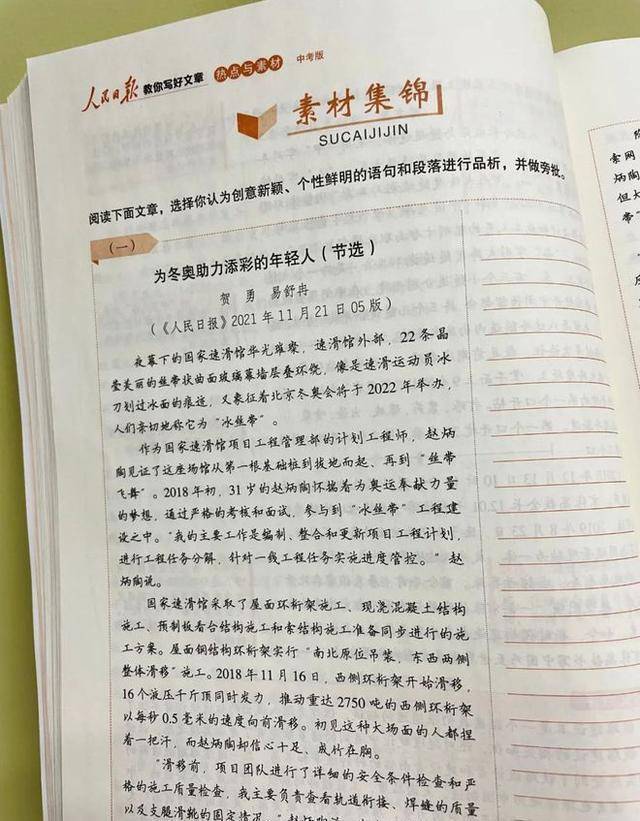 人民日报 教你写好文章 热点与素材 中考版
素材集锦
SUCAIJIJIN
阅读下面文章，选择你认为创意新颖、个性鲜明的语句和段落进行品析，并做旁批。
（一）
为冬奥助力添彩的年轻人（节选）
贺 勇 易舒冉
（《人民日报》2021年11月21日05版）
夜幕下的国家速滑馆华光璀璨，速滑馆外部，22条晶
莹美丽的丝带状曲面玻璃幕墙层叠环绕，像是速滑运动员冰
刀划过冰面的痕迹，又象征着北京冬奥会将于2022年举办，
人们亲切地称它为“冰丝带”。
作为国家速滑馆项目工程管理部的计划工程师，赵炳
陶见证了这座场馆从第一根基础桩到拔地而起、再到“丝带
飞舞”。2018年初，31岁的赵炳陶怀揣着为奥运奉献力量
的梦想，通过严格的考核和面试，参与到“冰丝带”工程建
设之中。“我的主要工作是编制、整合和更新项目工程计划，
进行工程任务分解，针对一线工程任务实施进度管控。”赵
炳陶说。
国家速滑馆采取了屋面环桁架施工、现浇混凝土结构
施工、预制板看台结构施工和索结构施工准备同步进行的施
工方案。屋面钢结构环桁架实行“南北原位吊装，东西两侧
整体滑移”施工。2018年11月16日，西侧环桁架开始滑移，
16个液压千斤顶同时发力，推动重达2750吨的西侧环桁架
以每秒0.5毫米的速度向前滑移。初见这种大场面的人都捏
着一把汗，而赵炳陶却信心十足、成竹在胸。
“滑移前，项目团队进行了详细的安全条件检查和严
格的施工质量检查，我主要负责查看轨道衔接、焊缝的质量
以及支腿滑靴的固定情况。”赵炳陶
索网
炳陶
但大